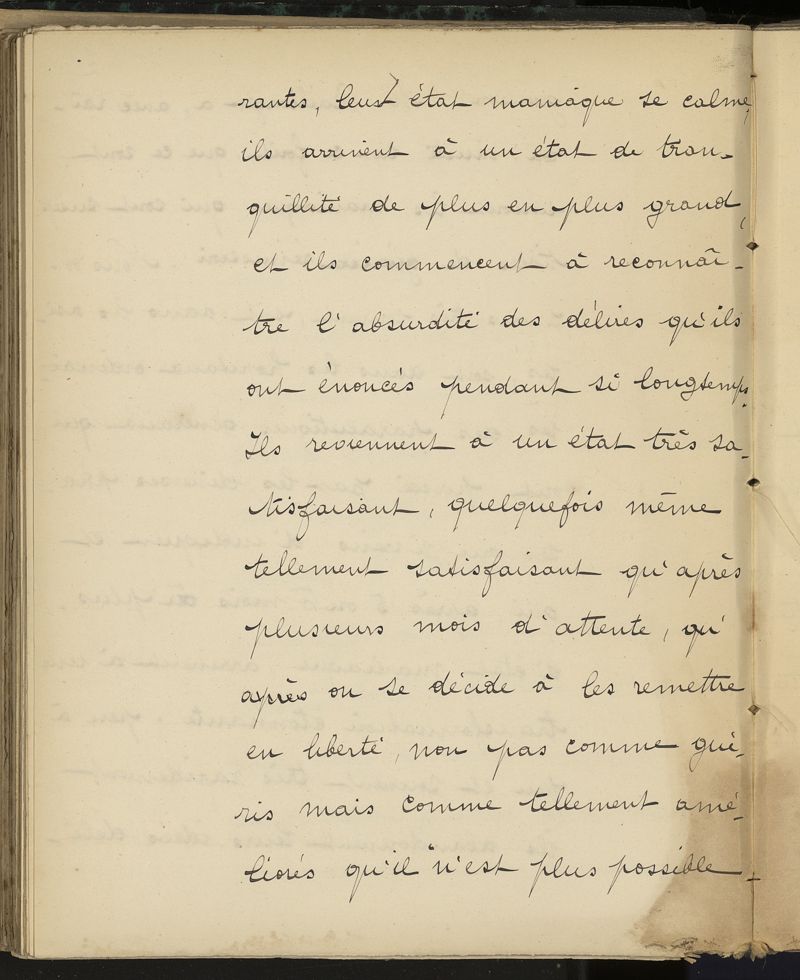 rantes, leur état maniaque se calme,
ils arrivent à un état de tran-
quillité de plus en plus grand,
et ils commencent à reconnaî-
tre l'absurdité des délires qu'ils
ont énoncés pendant si longtemps.
Ils reviennent à un état très sa-
tisfaisant, quelquefois même
tellement satisfaisant qu'après
plusieurs mois d'attente, qu'
après on se décide à les remettre
en liberté, non pas comme gué-
ris mais comme tellement amé-
liorés qu'il n'est plus possible